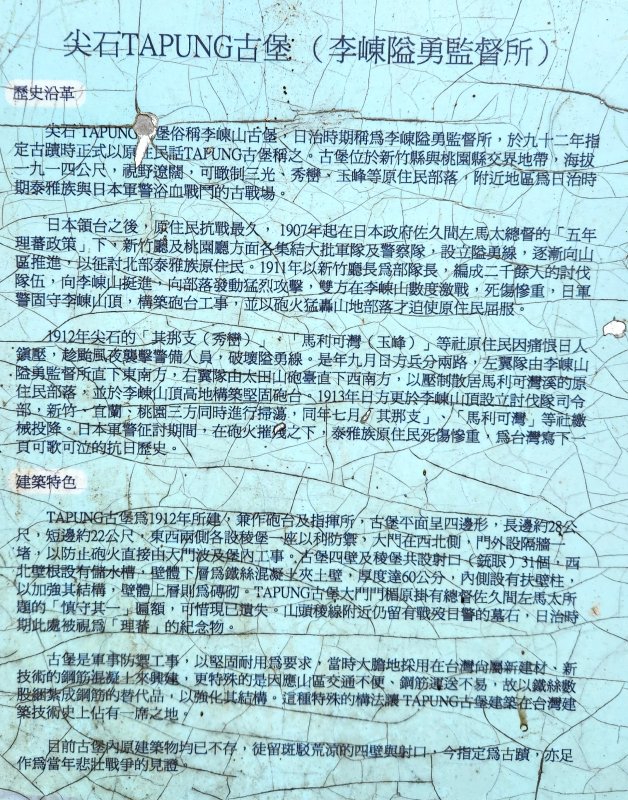 尖石TAPUNG古堡（李崠隘勇監督所）
歷史沿革
尖石TAPUNG古堡俗稱李崠山古堡，日治時期稱爲李崠隘勇監督所，於九十二年指
定古蹟時正式以原住民話TAPUNG古堡稱之。古堡位於新竹縣與桃園縣交界地帶，海拔
一九一四公尺，視野遼闊，可瞰制三光、秀巒、玉峰等原住民部落，附近地區爲日治時
期泰雅族與日本軍警浴血戰鬥的古戰場。
日本領台之後，原住民抗戰最久，1907年起在日本政府佐久間左馬太總督的「五年
理蕃政策」下，新竹廳及桃園廳方面各集結大批軍隊及警察隊，設立隘勇線，逐漸向山
區推進，以征討北部泰雅族原住民。1911年以新竹廳長爲部隊長，編成二千餘人的討伐
隊伍，向李崠山挺進，向部落發動猛烈攻擊，雙方在李崠山數度激戰，死傷慘重，日軍
警固守李崠山頂，構築砲台工事，並以砲火猛轟山地部落才迫使原住民屈服。
1912年尖石的「其那支（秀巒）」、「馬利可灣（玉峰）」等社原住民因痛恨日人
鎭壓，趁颱風夜襲擊警備人員，破壞隘勇線。是年九月日方兵分兩路，左翼隊由李崠山
隘勇監督所直下東南方，右翼隊由太田山砲臺直下西南方，以壓制散居馬利可灣溪的原
住民部落，並於李崠山頂高地構築堅固砲台。1913年日方更於李崠山頂設立討伐隊司令
部，新竹、宜蘭、桃園三方同時進行掃蕩，同年七月「其那支」、「馬利可灣」等社繳
械投降。日本軍警征討期間，在砲火摧殘之下，泰雅族原住民死傷慘重，爲台灣寫下一
頁可歌可泣的抗日歷史。
建築特色
TAPUNG古堡爲1912年所建，兼作砲台及指揮所，古堡平面呈四邊形，長邊約28公
尺，短邊約22公尺，東西兩側各設稜堡一座以利防禦，大門在西北側，門外設隔牆一
堵，以防止砲火直接由大門波及堡內工事。古堡四壁及稜堡共設射口（銃眼）31個，西
北壁根設有儲水槽，壁體下層爲鐵絲混凝土夾土壁，厚度達60公分，內側設有扶壁柱，
以加強其結構，壁體上層則爲磚砌。TAPUNG古堡大門門楣原掛有總督佐久間左馬太所
題的「慎守其一」匾額，可惜現已遺失。山頭稜線附近仍留有戰歿日警的墓石，日治時
期此處被視爲「理蕃」的紀念物。
古堡是軍事防禦工事，以堅固耐用爲要求，當時大膽地採用在台灣尙屬新建材、新
技術的鋼筋混凝土來興建，更特殊的是因應山區交通不便、鋼筋運送不易，故以鐵絲數
股綑紮成鋼筋的替代品，以強化其結構。這種特殊的構法讓TAPUNG古堡建築在台灣建
築技術史上佔有一席之地。
目前古堡內原建築物均已不存，徒留斑駁荒涼的四壁與射口，今指定爲古蹟，亦足
作爲當年悲壯戰爭的見證。